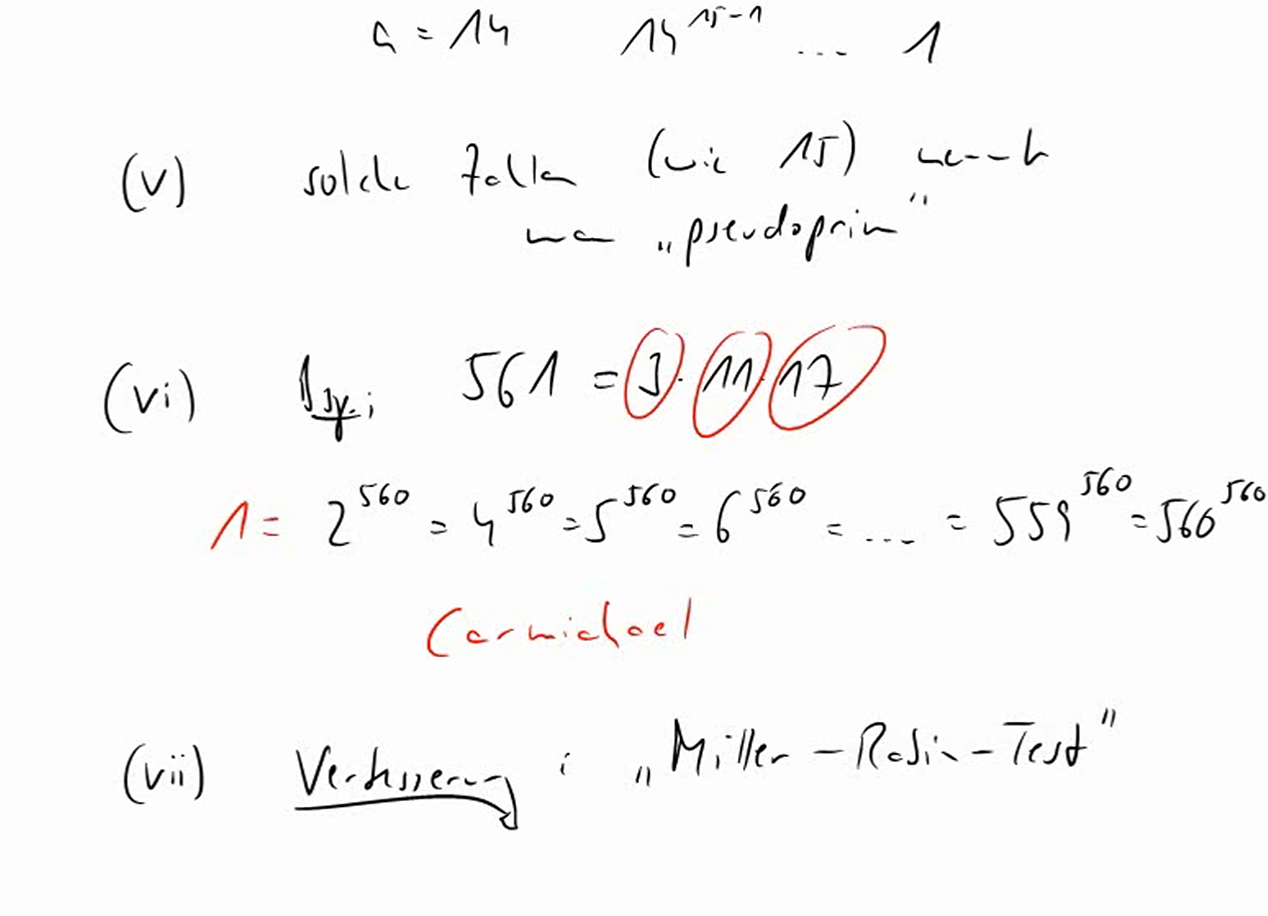 a = 14 14^15-1 ... 1
(v) solche Zahlen (wie 15) nennt
man „pseudoprim"
(vi) Bsp.: 561 = 3 · 11 · 17
1 = 2^560 = 4^560 = 5^560 = 6^560 = ... = 559^560 = 560^560
Carmichael
(vii) Verbesserung : „Miller-Rabin-Test"